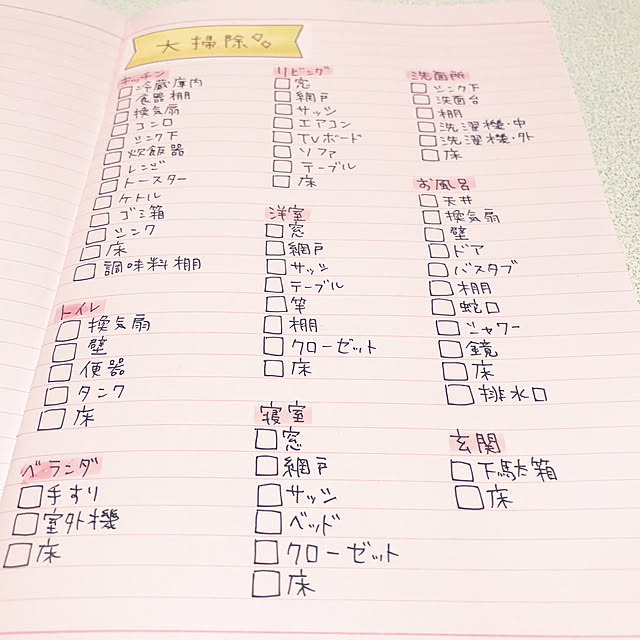 大掃除
キッチン
冷蔵庫内
食器棚
換気扇
コンロ
シンク下
炊飯器
レンジ
トースター
ケトル
ゴミ箱
シンク
床
調味料棚
トイレ
換気扇
壁
便器
タンク
床
ベランダ
手すり
室外機
床
リビング
窓
網戸
サッシ
エアコン
TVボード
ソファ
テーブル
床
洋室
窓
網戸
サッシ
テーブル
竿
棚
クローゼット
床
寝室
窓
網戸
サッシ
ベッド
クローゼット
床
洗面所
シンク下
洗面台
棚
洗濯機・中
洗濯機・外
床
お風呂
天井
換気扇
壁
ドア
バスタブ
棚
蛇口
シャワー
鏡
床
排水口
玄関
下駄箱
床